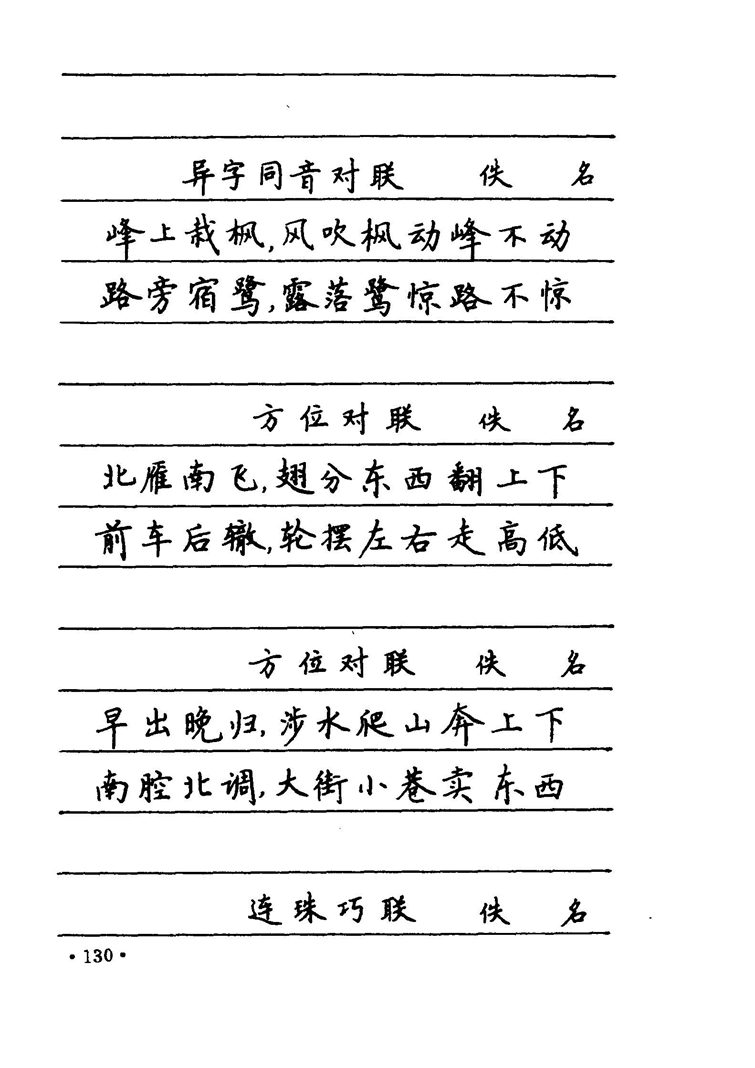 异字同音对联 佚名
峰上栽枫,风吹枫动峰不动
路旁宿鹭,露落鹭惊路不惊
方位对联 佚名
北雁南飞,翅分东西翻上下
前车后辙,轮摆左右走高低
方位对联 佚名
早出晚归,涉水爬山奔上下
南腔北调,大街小巷卖东西
连珠巧联 佚名
·130·